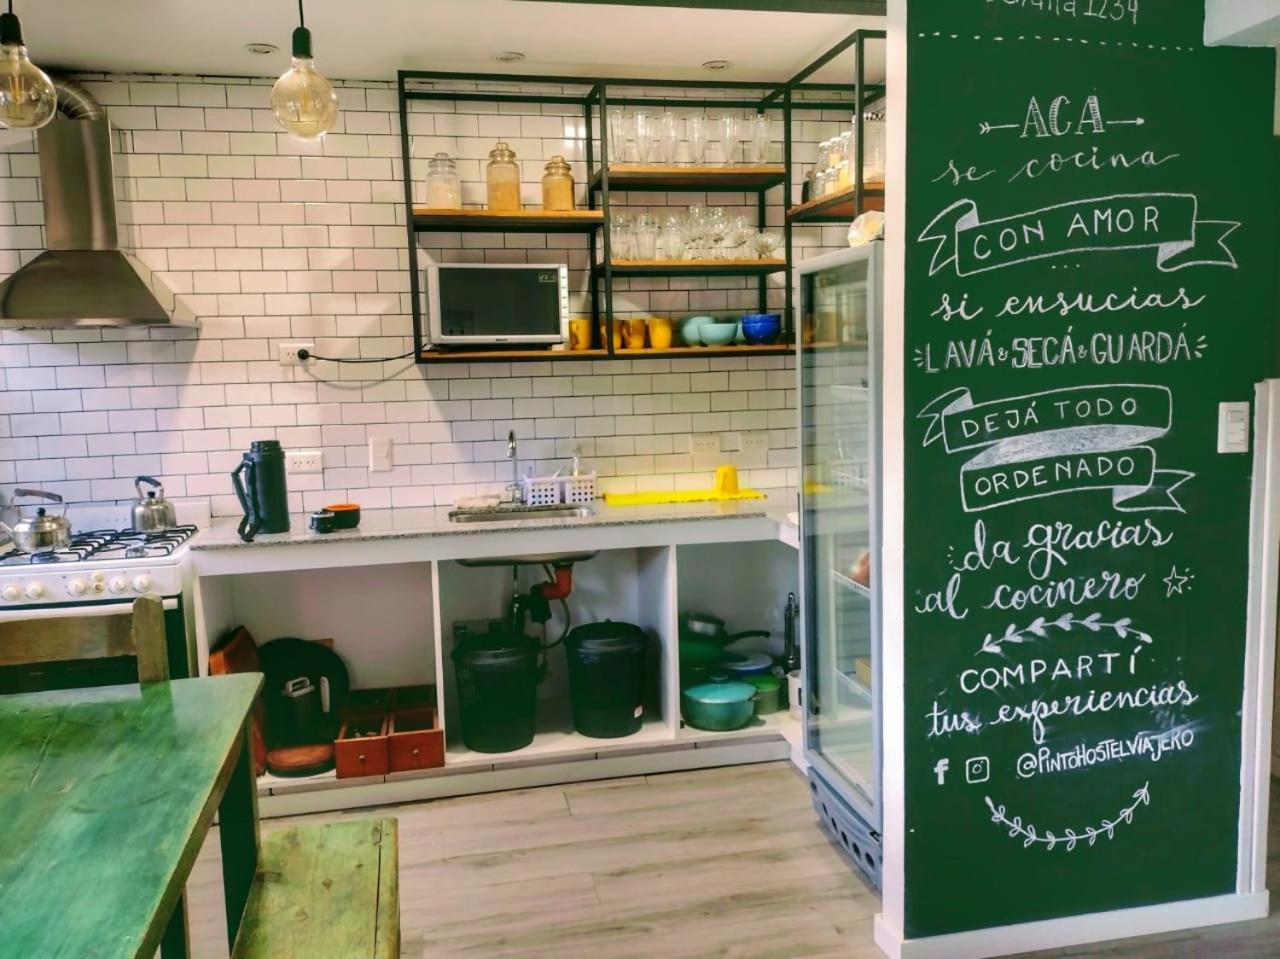 1234
ACA
se cocina
CON AMOR
si ensucias
LAVÁ & SECÁ & GUARDÁ
DEJÁ TODO
ORDENADO
da gracias
al cocinero
COMPARTÍ
tus experiencias
f @PINTÓHOSTELVIAJERO